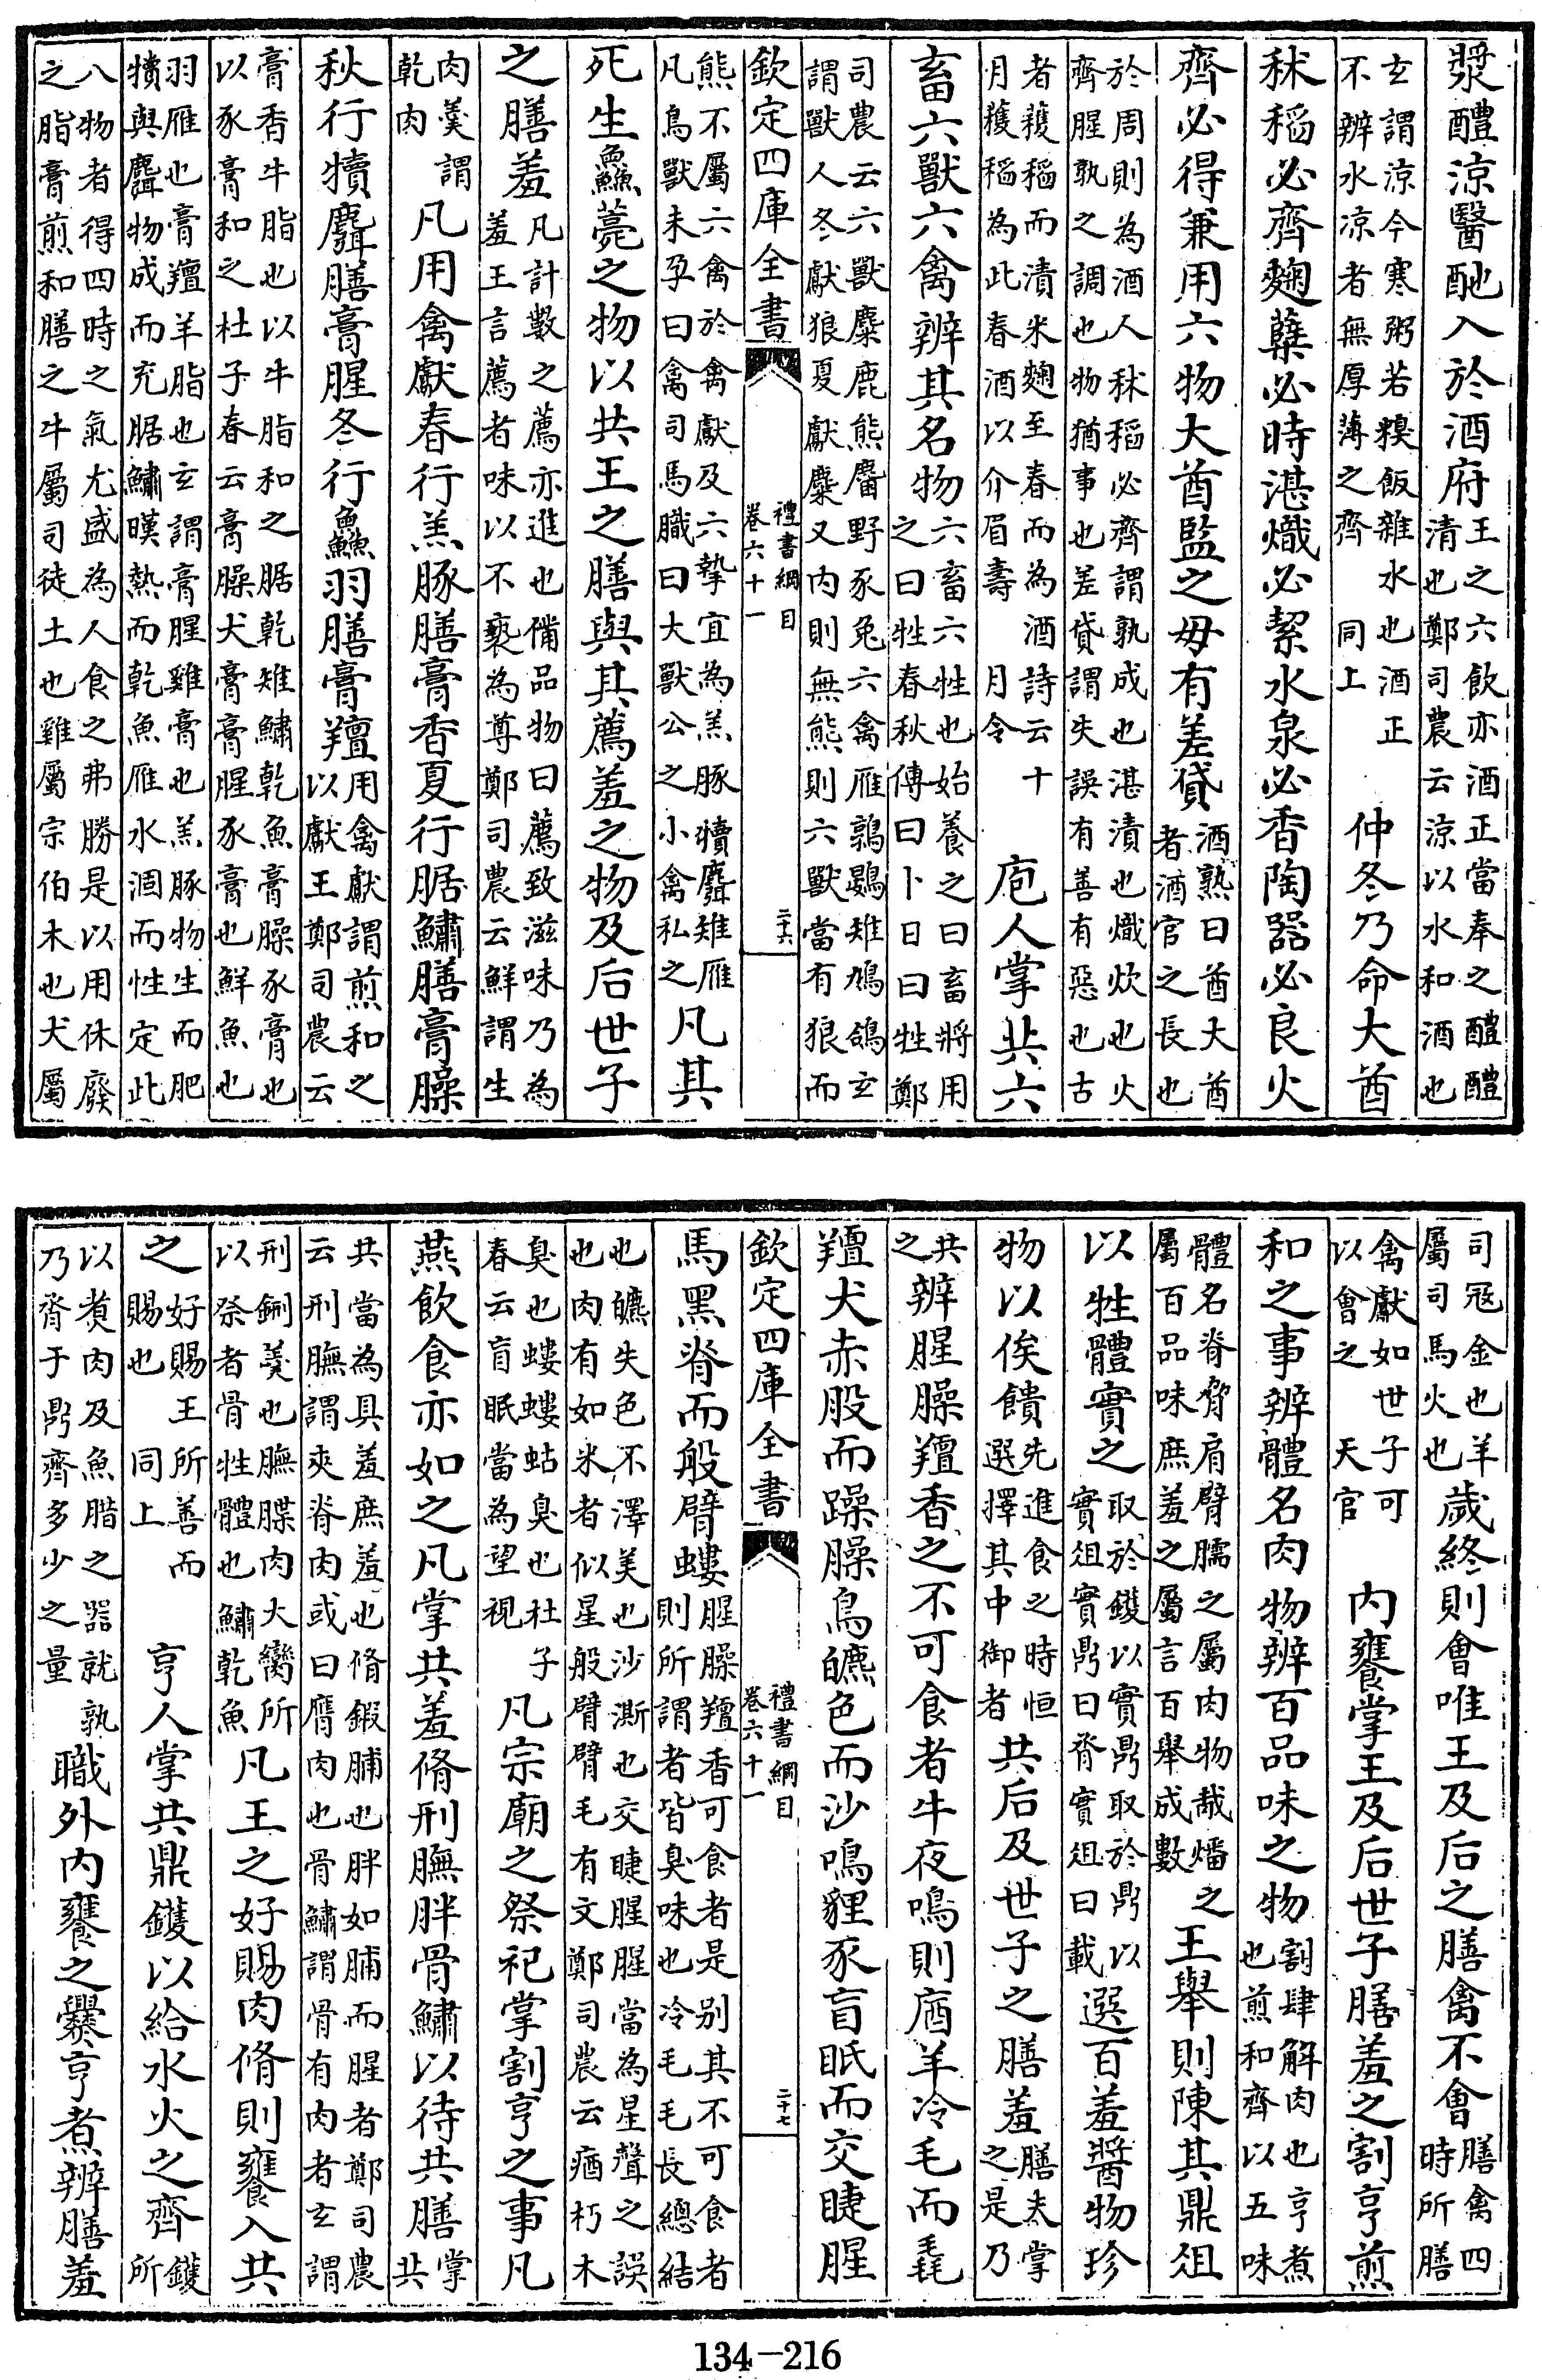 漿醴涼醫酏入於酒府王之六飲亦酒正當奉之醴醴清也鄭司農云涼以水和酒也
玄謂涼今寒粥若糗飯雜水也酒正不辨水涼者無厚薄之齊　同上　仲冬乃命大酋
秫稻必齊麴糱必時湛熾必㓗水泉必香陶器必良火
齊必得兼用六物大酋監之毋有差貸酒熟曰酋大酋者酒官之長也
於周則為酒人秫稻必齊謂孰成也湛漬也熾炊也火齊腥孰之調也物猶事也差貸謂失誤有善有惡也古
者穫稻而漬米麴至春而為酒詩云十月穫稻為此春酒以介眉壽　月令　庖人掌共六
畜六獸六禽辨其名物六畜六牲也始養之曰畜將用之曰牲春秋傳曰卜日曰牲鄭
司農云六獸麋鹿熊麕野豕兔六禽雁鶉鷃雉鳩鴿玄謂獸人冬獻狼夏獻麋又內則無熊則六獸當有狼而
欽定四庫全書　禮書綱目卷六十一　二十六
熊不屬六禽於禽獻及六摯宜為羔豚犢麛雉雁凡鳥獸未孕曰禽司馬職曰大獸公之小禽私之凡其
死生鱻薧之物以共王之膳與其薦羞之物及后世子
之膳羞凡計數之薦亦進也備品物曰薦致滋味乃為羞王言薦者味以不褻為尊鄭司農云鮮謂生
肉羹謂乾肉凡用禽獻春行羔豚膳膏香夏行腒鱐膳膏臊
秋行犢麛膳膏腥冬行鱻羽膳膏羶用禽獻謂煎和之以獻王鄭司農云
膏香牛脂也以牛脂和之腒乾雉鱐乾魚膏臊豕膏也以豕膏和之杜子春云膏臊犬膏膏腥豕膏也鮮魚也
羽雁也膏羶羊脂也玄謂膏腥雞膏也羔豚物生而肥犢與麛物成而充腒鱐暵熱而乾魚雁水涸而性定此
八物者得四時之氣尤盛為人食之弗勝是以用休廢之脂膏煎和膳之牛屬司徒土也雞屬宗伯木也犬屬
司寇金也羊屬司馬火也歲終則會唯王及后之膳禽不會膳禽四時所膳
禽獻如世子可以會之　天官　內饔掌王及后世子膳羞之割亨煎
和之事辨體名肉物辨百品味之物割肆解肉也亨煮也煎和齊以五味
體名脊脅肩臂臑之屬肉物胾燔之屬百品味庶羞之屬言百舉成數王舉則陳其鼎俎
以牲體實之取於鑊以實鼎取於鼎以實俎實鼎曰脀實俎曰載選百羞醬物珍
物以俟饋先進食之時恒選擇其中御者共后及世子之膳羞膳夫掌之是乃
共之辨腥臊羶香之不可食者牛夜鳴則庮羊泠毛而毳
羶犬赤股而躁臊鳥皫色而沙鳴貍豕盲眡而交睫腥
欽定四庫全書　禮書綱目卷六十一　二十七
馬黑脊而般臂螻腥臊羶香可食者是別其不可食者則所謂者皆臭味也泠毛毛長總結
也皫失色不澤美也沙澌也交睫腥腥當為星聲之誤也肉有如米者似星般臂臂毛有文鄭司農云庮朽木
臭也螻螻蛄臭也杜子春云盲眂當為望視凡宗廟之祭祀掌割亨之事凡
燕飲食亦如之凡掌共羞脩刑膴胖骨鱐以待共膳掌共
共當為具羞庶羞也脩鍛脯也胖如脯而腥者鄭司農云刑膴謂夾脊肉或曰膺肉也骨鱐謂骨有肉者玄謂
刑鉶羹也膴䐑肉大臠所以祭者骨牲體也鱐乾魚凡王之好賜肉脩則饔人共
之好賜王所善而賜也　同上　亨人掌共鼎鑊以給水火之齊鑊所
以煮肉及魚腊之器就孰乃脀于鼎齊多少之量職外內饔之爨亨煮辨膳羞
134-216